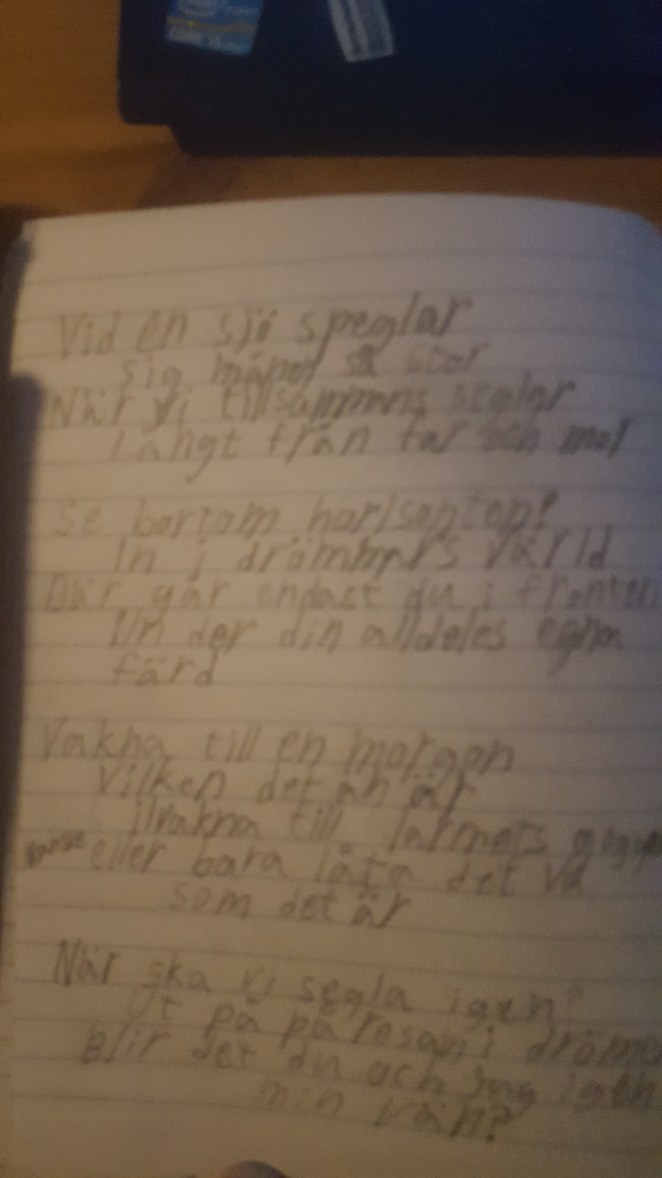 intel
Vid en sjö speglar
sig månen så stor
När vi tillsammans seglar
Långt från far och mor
Se bortom horisonten?
In i drömmars värld
Där går endast du i fronten
Un der din alldeles egna
färd
Vakna till en morgon
Vilken det än är
vakna till larmets
eller bara låta det va
som det är
När ska vi segla igen?
Ut på resan i
Blir det du och jag igen
min vän?